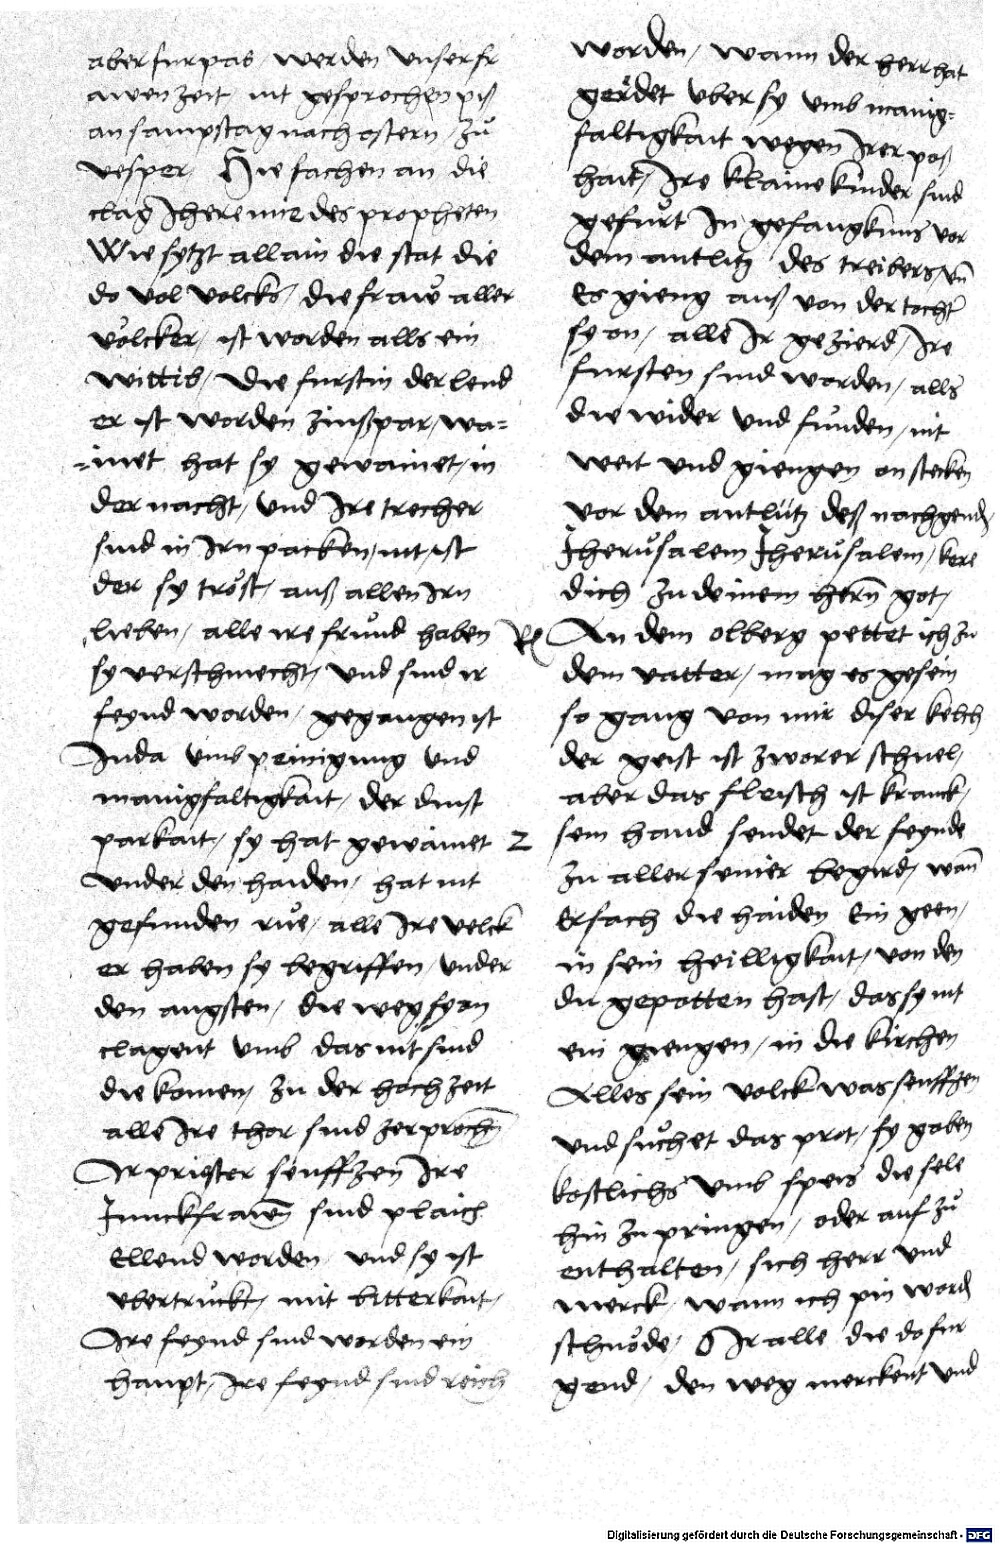 aber furpas / werden unser fr
awen zeit / nit gesprochen piß
an sampstag nach ostern / zů
vesper / Hie fachen an die
clag Jheremie des propheten
Wie sytzt allain die stat die
do vol volcks / die fraw aller
völcker / ist worden alls ein
wittib / Die furstin der lend
er ist worden zinßpar / wa=
=inet hat sy gewainet / in
der nacht / und Ire trecher
sind in Irn packen / nit ist
der sy tröst / auß allen Irn
lieben / alle ire frund haben
sy verschmecht / und sind ir
feynd worden / gegangen ist
Juda umb peinigung und
manigfaltigkait / der dinst
parkait / sy hat gewainet
under den haiden / hat nit
gefunden rue / alle Ire velck
er haben sy begriffen / under
den angsten / die weg syon
clagent umb das nit sind
die komen / zu der hochzeit
alle Ire thor sind zerprochn
Ir priester seufftzen Ire
Junckfrawen sind plaich
Ellend worden und sy ist
ubertruckt / mit bitterkait /
Ire feynd sind worden ein
haupt / Ire feynd sind reich
worden / wann der herr hat
gerdet uber sy umb manig=
faltigkait wegen Irer pos
hait / Ire klaine kinder sind
gefurt In gefangknus vor
dem antlitz des treibers / un
Es gieng auß von der tocht
syon / alle Ir gezierd / Ire
fursten sind worden / alls
die wider und funden / nit
weit und giengen on stecken
vor dem antlütz deß nachgend
Jherusalem Jherusalem / kere
dich zu deinem hern got /
Re An dem olberg pettet ich zu
dem vatter / mag es gesein
so gang von mir diser kelch
der geist ist zworer schnel /
aber das fleisch ist kranck /
2 sein hand sendet der feynde
zu aller seiner begird / wan
Er sach die haiden Ein geen /
in sein heilligkait / von den
du gepotten hast / das sy nit
ein giengen / in die kirchen
Alles sein volck was seufftzen
und suchet das prot / sy gaben
kostlichs umb speis die sele
hin zu pringen / oder auf zů
enthalten / sich herr und
merck / wann ich pin word
schnöde / O Ir alle die do fur
gend / den weg merckent und
Digitalisierung gefördert durch die Deutsche Forschungsgemeinschaft - DFG